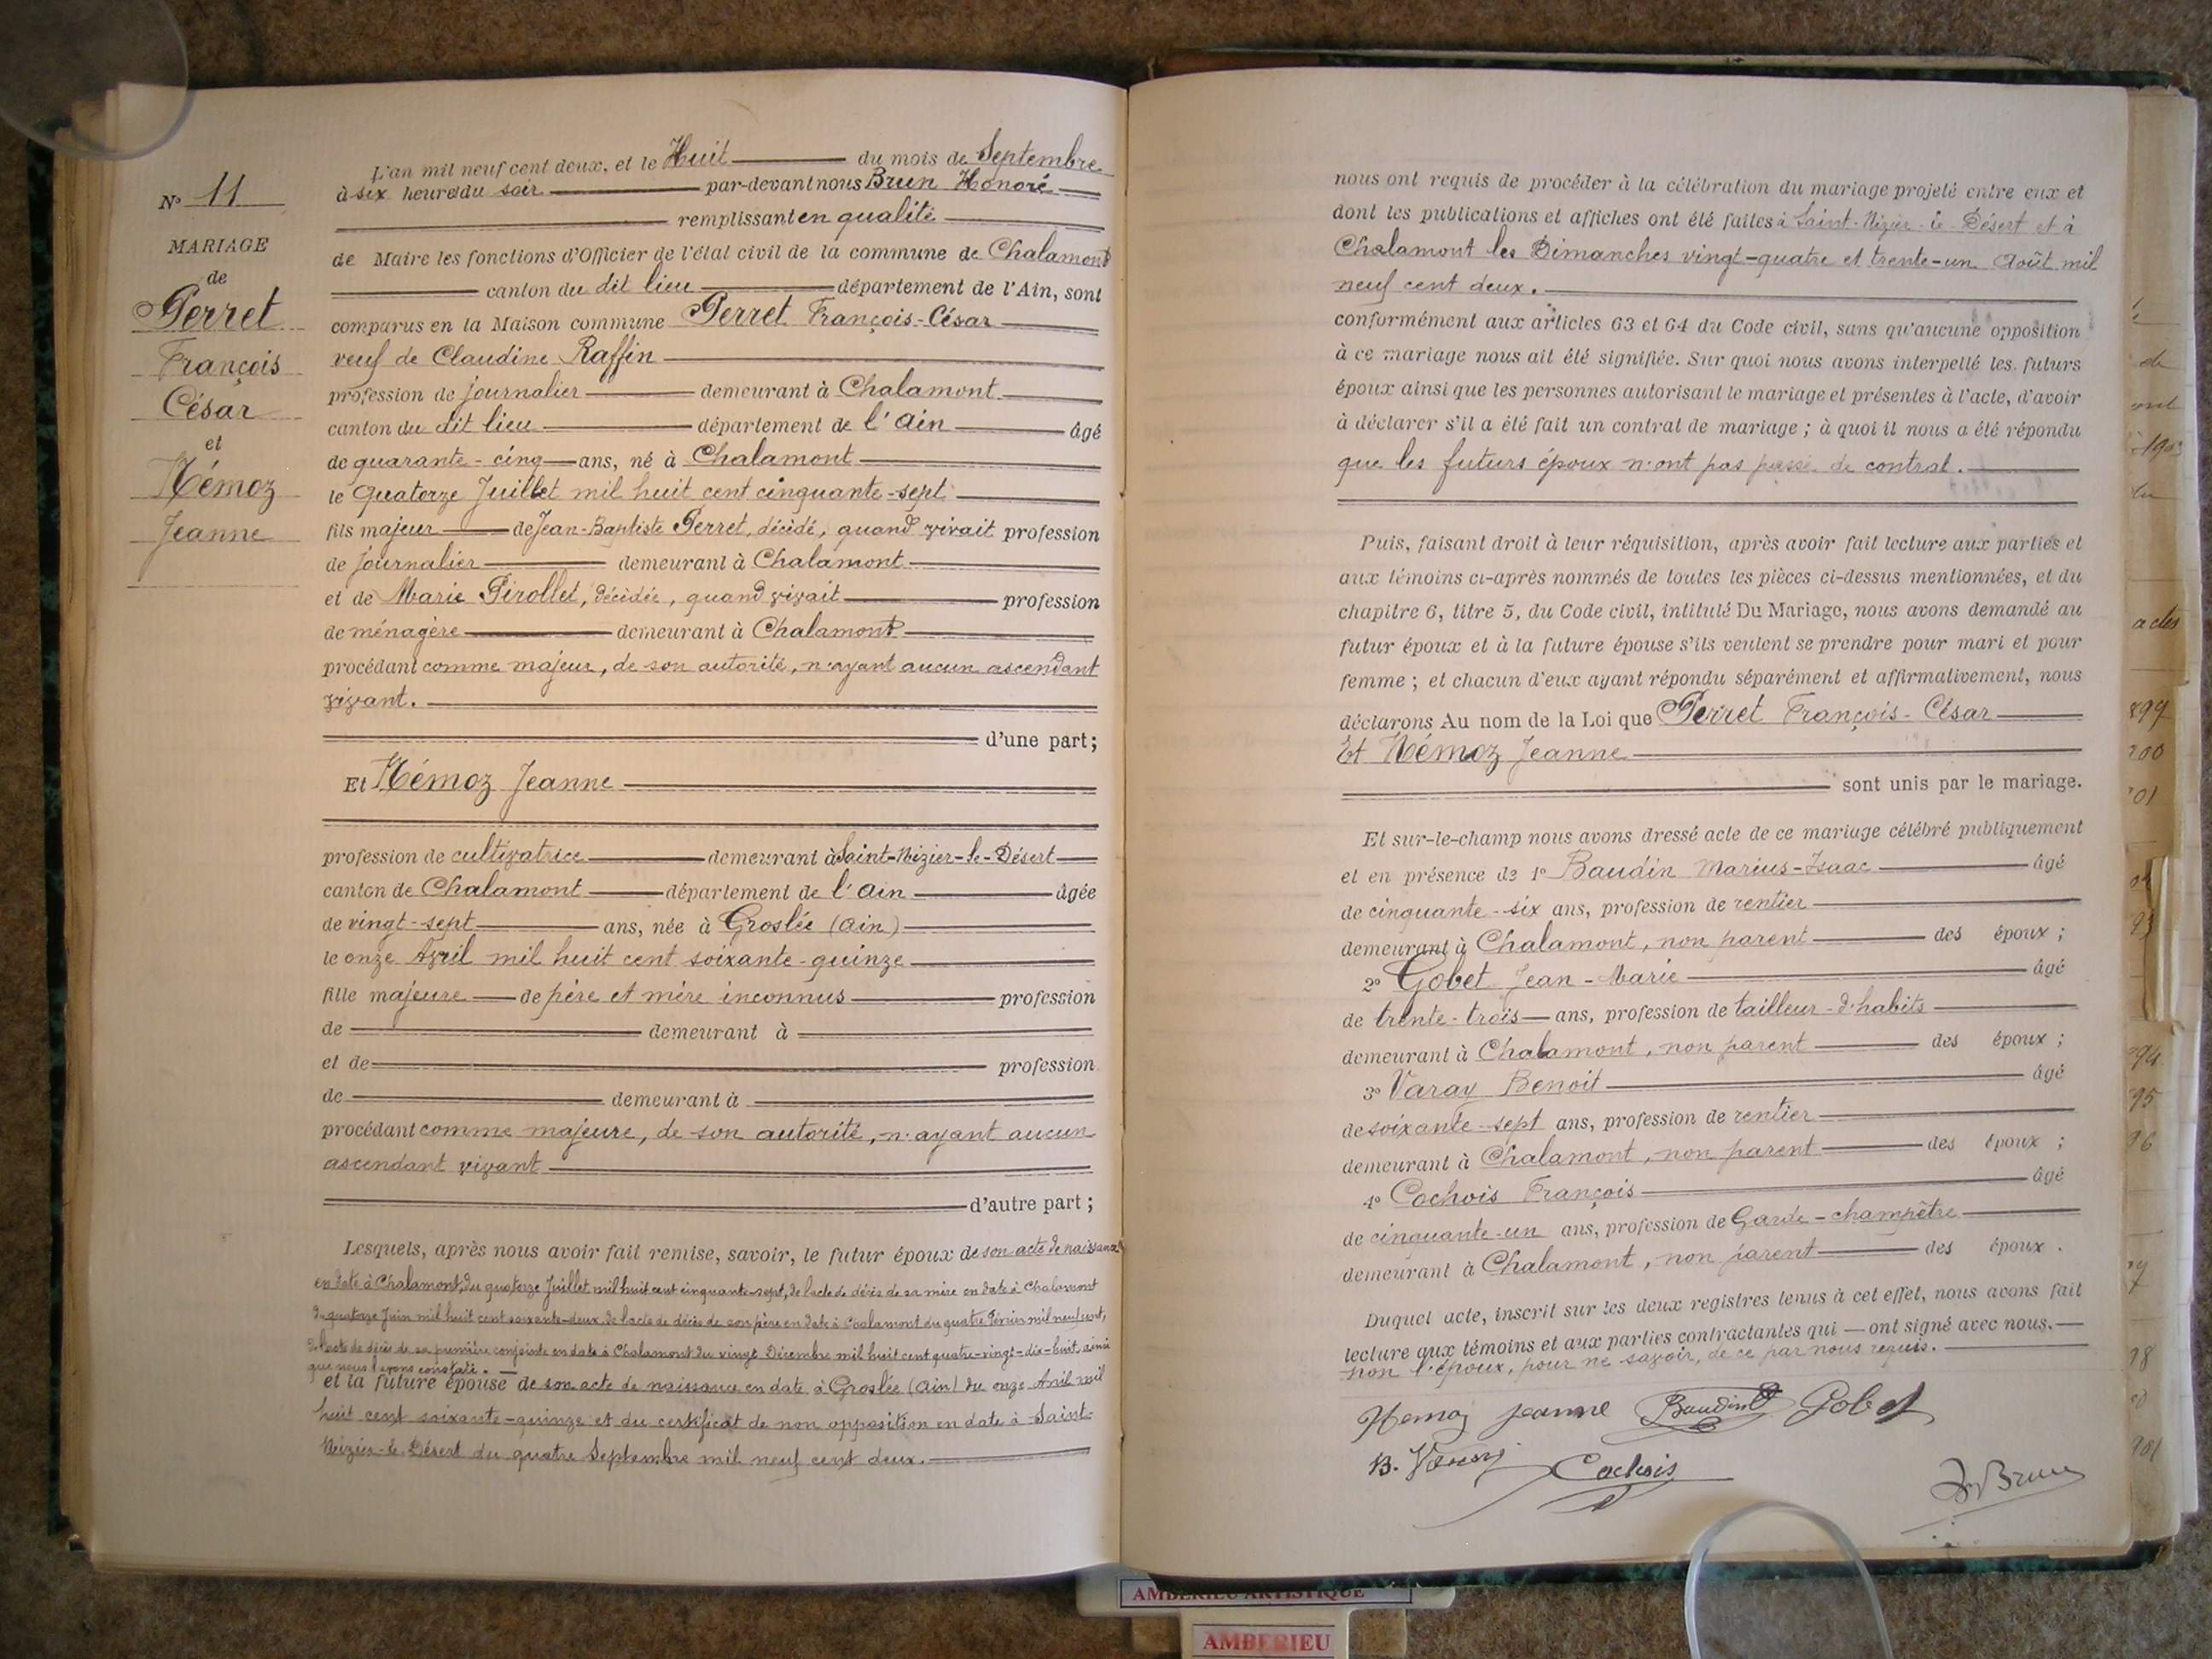 N° 11
MARIAGE
de
Perret
François
César
et
Hémoz
Jeanne
L'an mil neuf cent deux, et le Huit du mois de Septembre
à six heures du soir par-devant nous Brun Honoré
remplissant en qualité
de Maire les fonctions d'Officier de l'état civil de la commune de Chalamont
canton du dit lieu département de l'Ain, sont
comparus en la Maison commune Perret François-César
veuf de Claudine Raffin
profession de journalier demeurant à Chalamont
canton du dit lieu département de l'Ain âgé
de quarante-cinq ans, né à Chalamont
le Quatorze Juillet mil huit cent cinquante-sept
fils majeur de Jean-Baptiste Perret, décédé, quand vivait profession
de journalier demeurant à Chalamont
et de Marie Pirollet, décédée, quand vivait profession
de ménagère demeurant à Chalamont
procédant comme majeur, de son autorité, n'ayant aucun ascendant
vivant.
d'une part;
Et Hémoz Jeanne
profession de cultivatrice demeurant à Saint-Nizier-le-Désert
canton de Chalamont département de l'Ain âgée
de vingt-sept ans, née à Groslée (Ain)
le onze Avril mil huit cent soixante-quinze
fille majeure de père et mère inconnus profession
de demeurant à
et de profession
de demeurant à
procédant comme majeure, de son autorité, n'ayant aucun
ascendant vivant
d'autre part;
Lesquels, après nous avoir fait remise, savoir, le futur époux de son acte de naissance
en date à Chalamont, du quatorze Juillet mil huit cent cinquante-sept, de l'acte de décès de sa mère en date à Chalamont
du quatorze Juin mil huit cent soixante-deux, de l'acte de décès de son père en date à Chalamont du quatre Février mil neuf cent,
de l'acte de décès de sa première conjointe en date à Chalamont du vingt Décembre mil huit cent quatre-vingt-dix-huit, ainsi
que nous l'avons constaté.
et la future épouse de son acte de naissance en date à Groslée (Ain) du onze Avril mil
huit cent soixante-quinze et du certificat de non opposition en date à Saint-
Nizier-le-Désert du quatre Septembre mil neuf cent deux.
nous ont requis de procéder à la célébration du mariage projeté entre eux et
dont les publications et affiches ont été faites à Saint-Nizier-le-Désert et à
Chalamont les Dimanches vingt-quatre et trente-un Août mil
neuf cent deux.
conformément aux articles 63 et 64 du Code civil, sans qu'aucune opposition
à ce mariage nous ait été signifiée. Sur quoi nous avons interpellé les futurs
époux ainsi que les personnes autorisant le mariage et présentes à l'acte, d'avoir
à déclarer s'il a été fait un contrat de mariage; à quoi il nous a été répondu
que les futurs époux n'ont pas passé de contrat.
Puis, faisant droit à leur réquisition, après avoir fait lecture aux parties et
aux témoins ci-après nommés de toutes les pièces ci-dessus mentionnées, et du
chapitre 6, titre 5, du Code civil, intitulé Du Mariage, nous avons demandé au
futur époux et à la future épouse s'ils veulent se prendre pour mari et pour
femme; et chacun d'eux ayant répondu séparément et affirmativement, nous
déclarons Au nom de la Loi que Perret François-César
Et Hémoz Jeanne
sont unis par le mariage.
Et sur-le-champ nous avons dressé acte de ce mariage célébré publiquement
et en présence de 1° Baudin Marius-Isaac âgé
de cinquante-six ans, profession de rentier
demeurant à Chalamont, non parent des époux;
2° Gobet Jean-Marie âgé
de trente-trois ans, profession de tailleur-d'habits
demeurant à Chalamont, non parent des époux;
3° Varay Benoit âgé
de soixante-sept ans, profession de rentier
demeurant à Chalamont, non parent des époux;
4° Cochois François âgé
de cinquante-un ans, profession de Garde-champêtre
demeurant à Chalamont, non parent des époux.
Duquel acte, inscrit sur les deux registres tenus à cet effet, nous avons fait
lecture aux témoins et aux parties contractantes qui ont signé avec nous.
non l'époux, pour ne savoir, de ce par nous requis.
Hemoz jeanne Baudin Gobet
B. Varay Cochois
H Brun
actes
AMBERIEU ARTISTIQUE
AMBERIEU